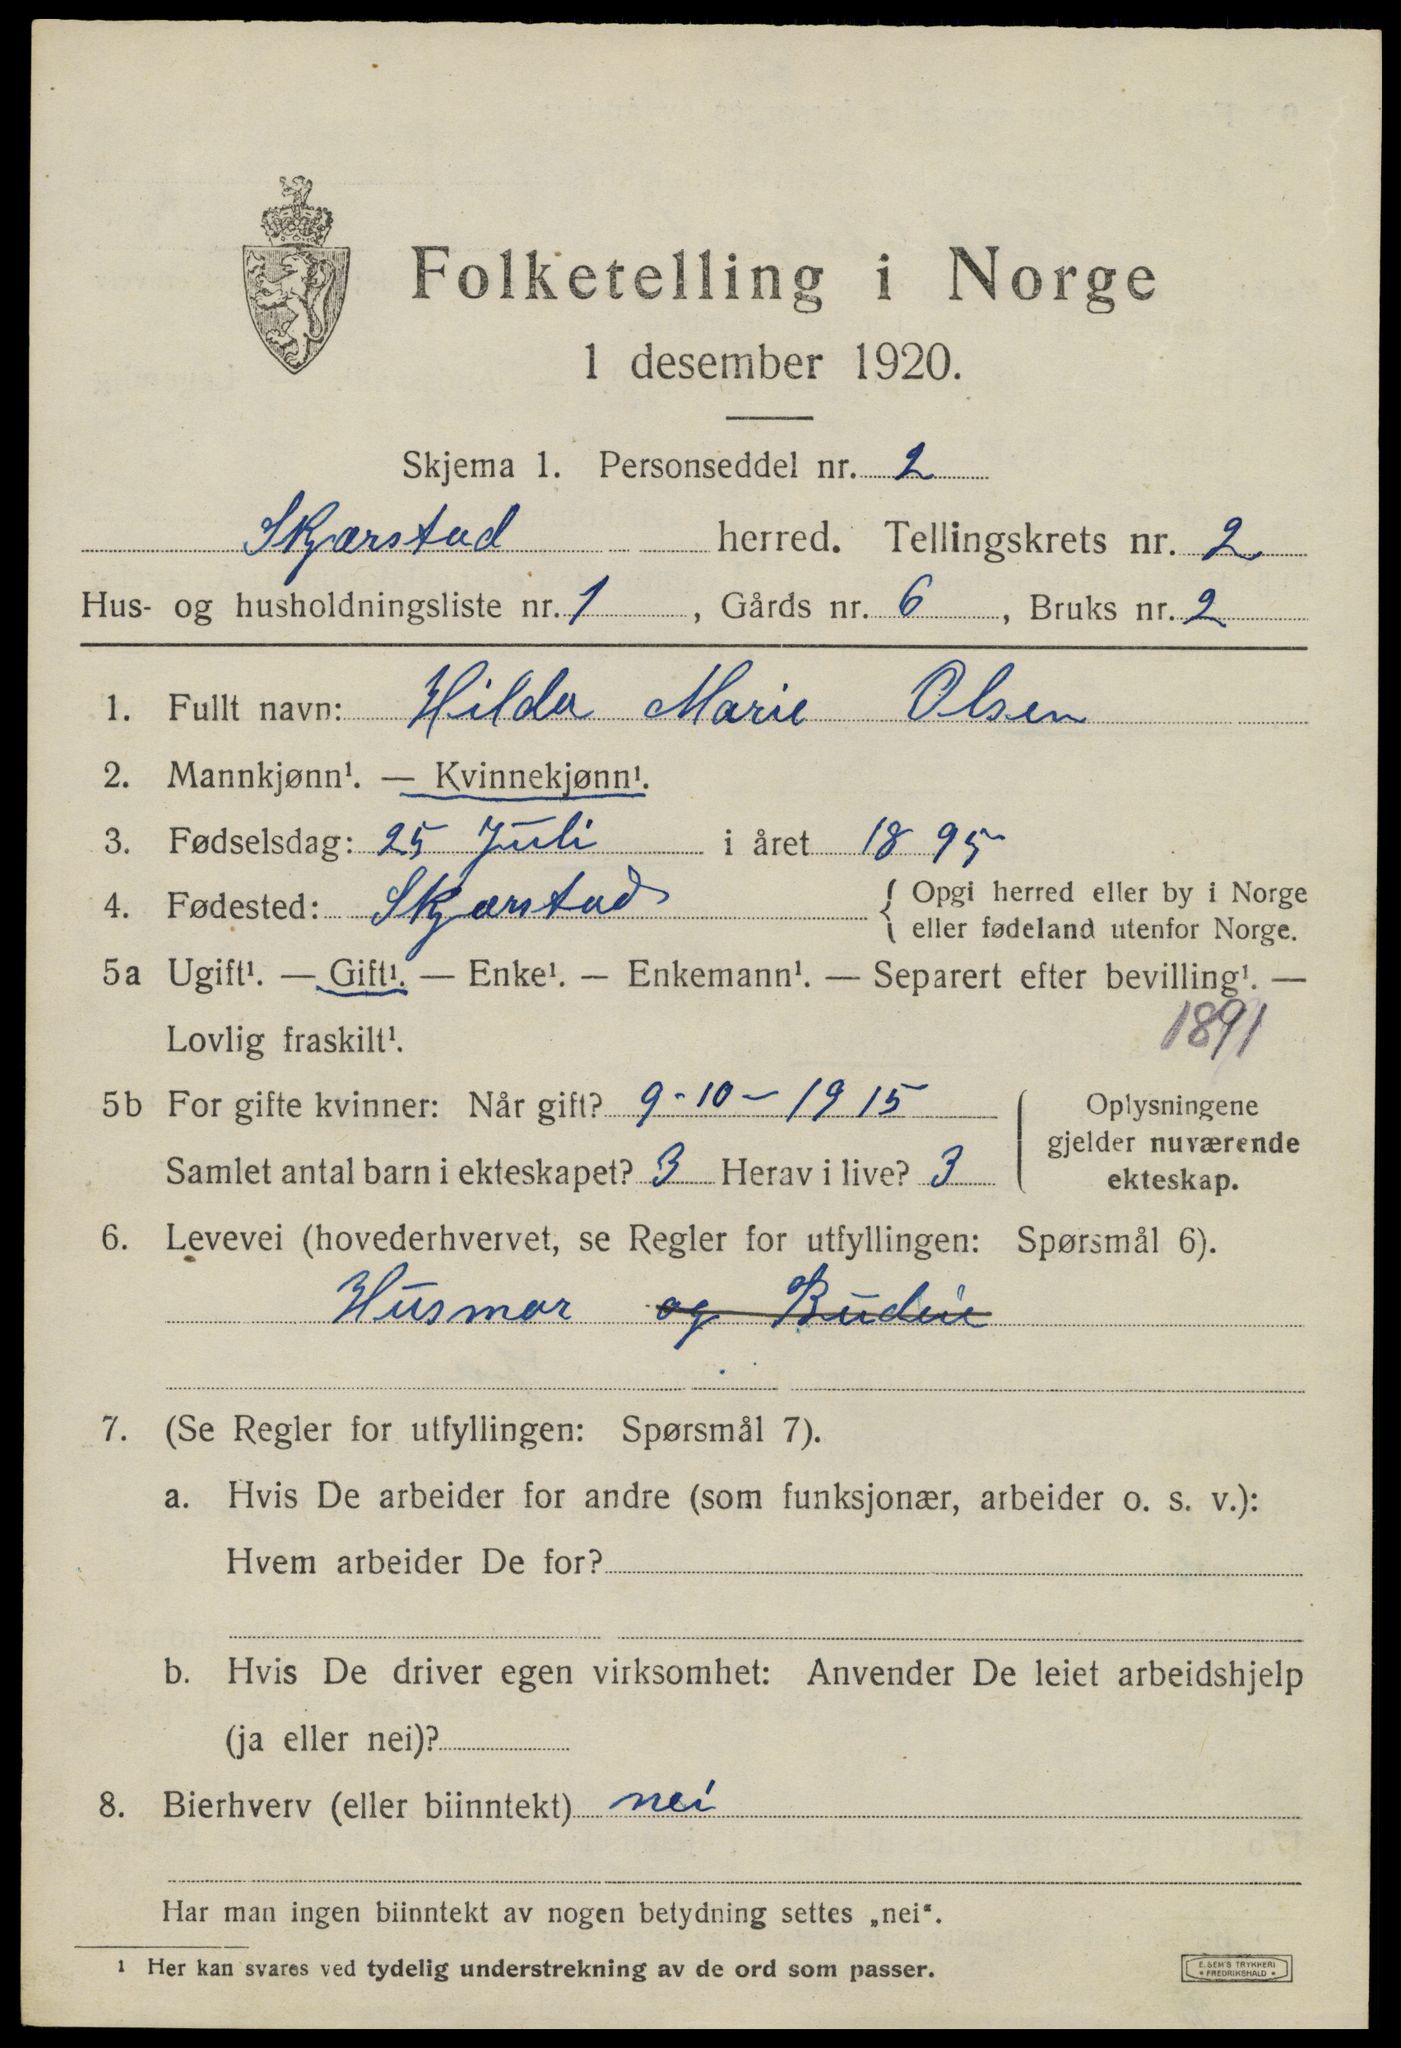 Folketelling i Norge
1 desember 1920.
Skjema 1. Personseddel nr. 2
Skjærstad herred. Tellingskrets nr. 2
Hus- og husholdningsliste nr. 1, Gårds nr. 6, Bruks nr. 2
1. Fullt navn: Hilda Marie Olsen
2. Mannkjønn¹. — Kvinnekjønn¹.
3. Fødselsdag: 25 Juli i året 1895
4. Fødested: Skjærstad { Opgi herred eller by i Norge
eller fødeland utenfor Norge.
5a Ugift¹. — Gift¹. — Enke¹. — Enkemann¹. — Separert efter bevilling¹. —
Lovlig fraskilt¹. 1891
5b For gifte kvinner: Når gift? 9-10-1915
Samlet antal barn i ekteskapet? 3 Herav i live? 3
Oplysningene
gjelder nuværende
ekteskap.
6. Levevei (hovederhvervet, se Regler for utfyllingen: Spørsmål 6).
Husmor og Budeie
7. (Se Regler for utfyllingen: Spørsmål 7).
a. Hvis De arbeider for andre (som funksjonær, arbeider o. s. v.):
Hvem arbeider De for?
b. Hvis De driver egen virksomhet: Anvender De leiet arbeidshjelp
(ja eller nei)?
8. Bierhverv (eller biinntekt) nei
Har man ingen biinntekt av nogen betydning settes „nei“.
¹ Her kan svares ved tydelig understrekning av de ord som passer.
E. SEM'S TRYKKERI
• FREDRIKSHALD •